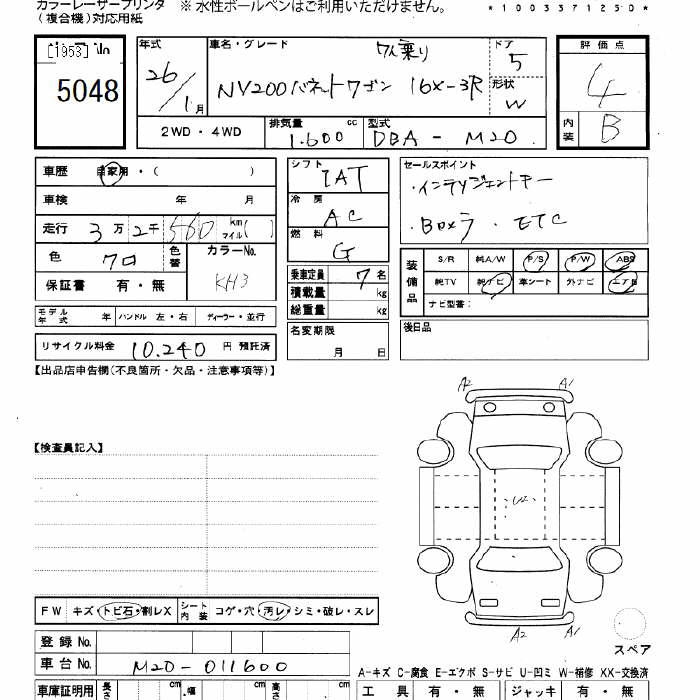 カラーレーザープリンタ ※ 水性ボールペンはご利用いただけません。 *1003371250*
(複合機)対応用紙
[1953] No
5048
年式 車名・グレード 7人乗り ドア 5 評価点
26/1月 NV200バネットワゴン 16X-3R 形状 W 4
2WD・4WD 排気量 1.600 cc 型式 DBA-M20 内装 B
車歴 自家用・( )
車検 年 月
走行 3万2千560 km マイル( )
色 クロ 色替 カラーNo. KH3
保証書 有・無
シフト IAT
冷房 AC
燃料 G
乗車定員 7名
積載量 kg
総重量 kg
名変期限
月 日
セールスポイント
・インテリジェントキー
・Boxラ ・ETC
装備品 S/R 純A/W P/S P/W ABS
純TV 純ナビ 革シート 外ナビ エアB
ナビ型番:
後日品
モデル年式 年 ハンドル 左・右 ディーラー・並行
リサイクル料金 10.240 円 預託済
【出品店申告欄(不良箇所・欠品・注意事項等)】
A2 A1
【検査員記入】
U2
A2 A1
FW キズ・トビ石・割レX シート内装 コゲ・穴・汚レ・シミ・破レ・スレ
スペア
登録No.
車台No. M20-011600
A-キズ C-腐食 E-エクボ S-サビ U-凹ミ W-補修 XX-交換済
車庫証明用 長さ cm ・幅 cm 高さ cm 工具 有・無 ジャッキ 有・無